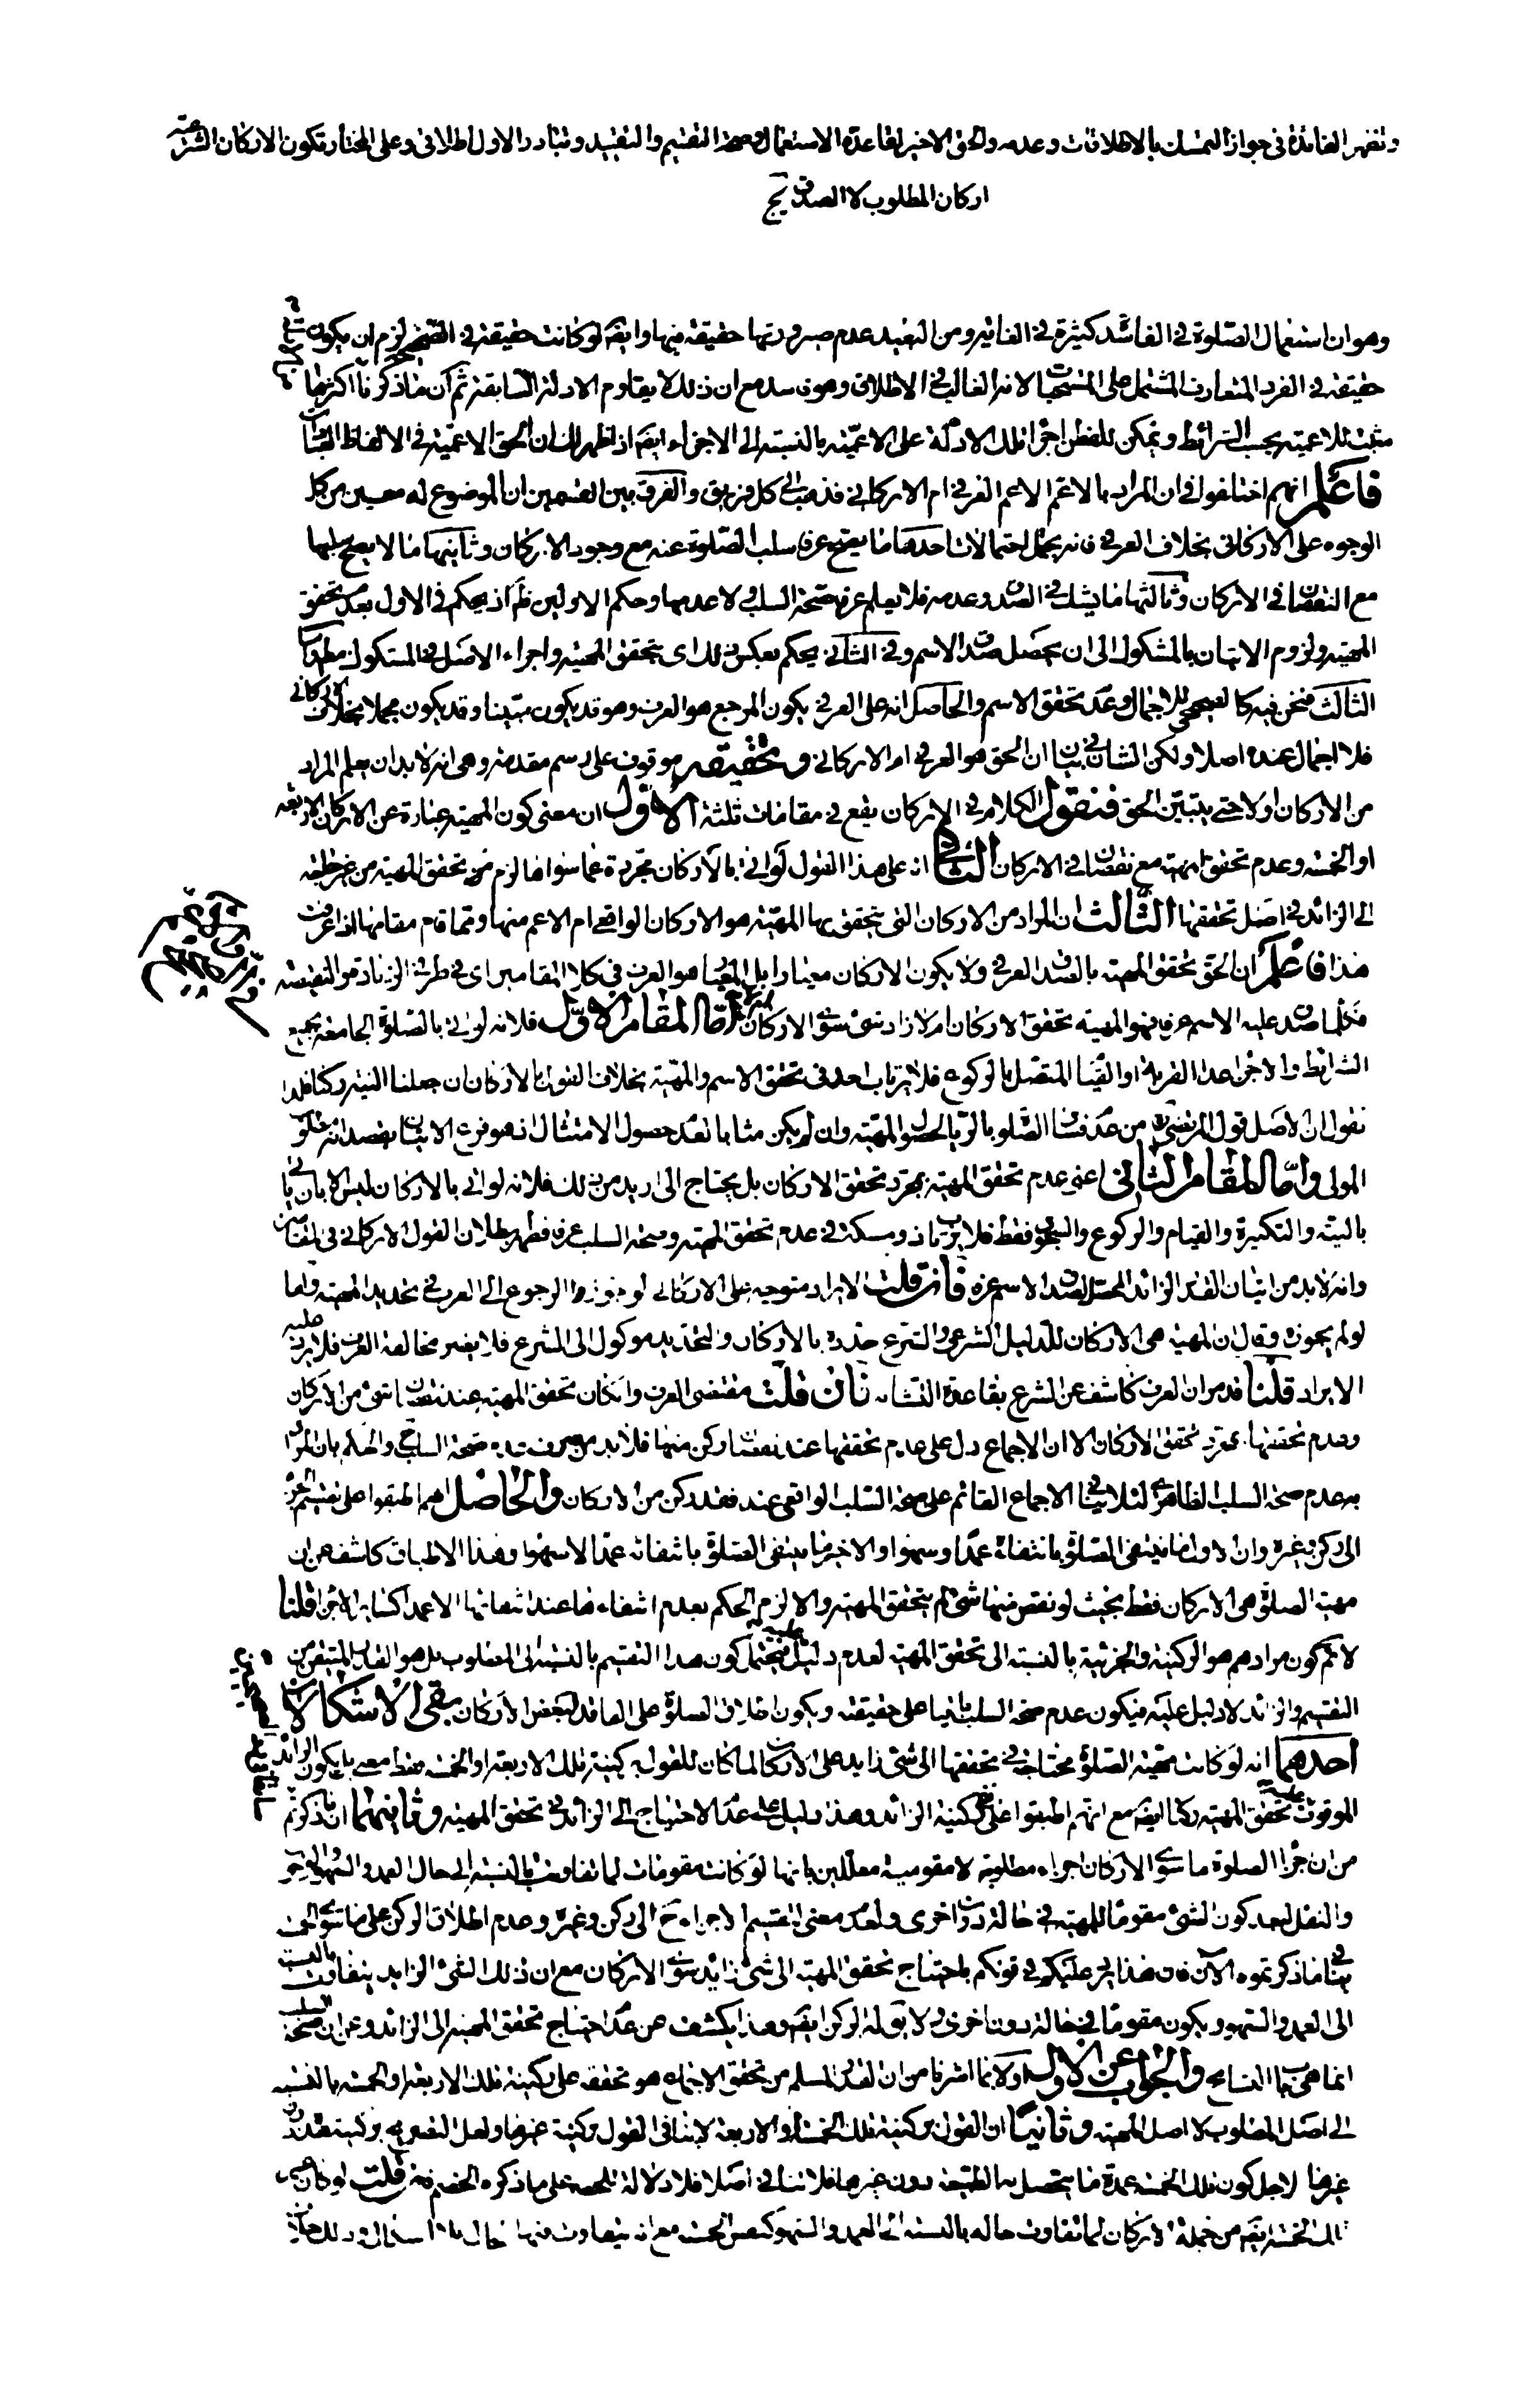 وتظهر الفائدة في جواز التمسك بالاطلاقات وعدمه والحق الاخير لقاعدة الاستعمال وصحة التقسيم والتقييد وتبادر الاول اطلاقي وعلى المختار تكون الاركان الشرعية
اركان المطلوب لا الصدق
وهو ان استعمال الصلوة في الفاسد كثيرة في الغاية ومن البعيد عدم صيرورتها حقيقة فيها وايضا لو كانت حقيقة في الصحيح لزم ان يكون
حقيقة في الفرد المتعارف المشتمل على المستحبات لانه الغالب في الاطلاق وهو مع ان ذلك لا يقاوم الادلة السابقة ثم ان ما ذكرنا اكثرها
مثبت للاعمية بحسب الشرائط ويمكن للفطن اجراء تلك الادلة على الاعمية بالنسبة الى الاجزاء ايضا اذا ظهر لك ان الحق الاعمية في الالفاظ
فاعلم انهم اختلفوا في ان المراد بالاعم الاعم العرفي ام الاركاني فذهب الى كل فريق والفرق بين القسمين ان الموضوع له معين من كل
الوجوه على الاركاني بخلاف العرفي فانه يحتمل احتمالات احدها ما يصح عرفا سلب الصلوة عنه مع وجود الاركان وثانيها ما لا يصح سلبها
مع النقصان في الاركان وثالثها ما يشك في الصدق وعدمه فلا يعلم عرفا صحة السلب ولا عدمها وحكم الاولين ظاهر اذ يحكم في الاول بعدم تحقق
المهية ولزوم الاتيان بالمشكوك الى ان يحصل صدق الاسم وفي الثاني يحكم بعكس ذلك اى بتحقق المهية واجراء الاصل في المشكوك
الثالث فنحن فيه كالصحيحي للاجمال وعدم تحقق الاسم والحاصل انه على العرفي يكون المرجع هو العرف وهو قد يكون مبينا وقد يكون مجملا بخلاف الاركاني
فلا اجمال عنده اصلا ولكن الشان في بيان ان الحق هو العرفي ام الاركاني وتحقيقه موقوف على رسم مقدمة وهى انه لا بد ان يعلم المراد
من الاركان اولا حتى يتبين الحق فنقول الكلام في الاركان يقع في مقامات ثلثة الاول ان معنى كون المهية عبارة عن الاركان الاربعة
او الخمسة وعدم تحقق المهية مع نقصان في الاركان الثاني انه على هذا القول لو اتى بالاركان مجردة عما سواها لزم منه تحقق المهية من غير حاجة
الى الزائد في اصل تحققها الثالث ان المراد من الاركان التى يتحقق بها المهية هو الاركان الواقعي ام الاعم منها ومما قام مقامها اذا عرفت
هذا فاعلم ان الحق تحقق المهية بالصدق العرفي ولا يكون الاركان معيارا بل المعيار هو العرف في كلا المقامين اى في طرفي الزيادة والنقيصة
فكلما صدق عليه الاسم عرفا فهو المهية تحقق الاركان ام لا زاد شىء سوى الاركان ام لا اما المقام الاول فلانه لو اتى بالصلوة الجامعة بجميع
الشرائط والاجزاء عدا القربة او القيام المتصل بالركوع فلا يرتاب احد في تحقق الاسم والمهية بخلاف القول بالاركان ان جعلنا النية ركنا فلذا
نقول ان الاصل قول المرتضى من عدم فساد الصلوة بالريا لحصول المهية وان لم يكن مثابا لعدم حصول الامتثال اذ هو فرع الاتيان بقصد انه مطلوب
المولى واما المقام الثاني اعني عدم تحقق المهية بمجرد تحقق الاركان بل يحتاج الى ازيد من ذلك فلانه لو اتى بالاركان ليس الا بان ياتي
بالنية والتكبيرة والقيام والركوع والسجود فقط فلا يرتاب ذو مسكة في عدم تحقق المهية وصحة السلب عرفا فظهر بطلان القول الاركاني في المقامين
وانه لا بد من اتيان القدر الزائد المحصل لصدق الاسم عرفا فان قلت الايراد متوجه على الاركاني لو جوز الرجوع الى العرف في تحديد المهية واما
لو لم يجوزه وقال ان المهية هى الاركان للدليل الشرعي والشرع حدده بالاركان والتحديد موكول الى الشرع فلا يضر مخالفة العرف فلا يرد عليه
الايراد قلنا قد مر ان العرف كاشف عن الشرع بقاعدة التشابه فان قلت مقتضى العرف وان كان تحقق المهية عند نقصان شىء من الاركان
وعدم تحققها بمجرد تحقق الاركان الا ان الاجماع دل على عدم تحققها عند نقصان ركن منها فلا بد من صحة السلب والحكم بان المراد
به عدم صحة السلب الظاهري لئلا ينافي الاجماع القائم على صحة السلب الواقعي عند فقد ركن من الاركان والحاصل انهم اطبقوا على تقسيم الجزء
الى ركن وغيره وان الاول ما ينتفى الصلوة بانتفائه عمدا وسهوا والاخير ما ينتفى الصلوة بانتفائه عمدا لا سهوا وهذا الاطباق كاشف عن ان
مهية الصلوة هى الاركان فقط بحيث لو نقص منها شىء لم يتحقق المهية والا لزم الحكم بعدم انتفاء ما عند انتفائها الا عمدا كسائر الاجزاء قلنا
لا نم كون مرادهم هو الركنية والجزئية بالنسبة الى تحقق المهية لعدم دليل عليه فيحتمل كون هذا التقسيم بالنسبة الى المطلوب بل هو القدر المتيقن من
التقسيم والزائد لا دليل عليه فيكون عدم صحة السلب باقيا على حقيقته ويكون اطلاق الصلوة على الفاقد لبعض الاركان بقى الاشكالان
احدهما انه لو كانت مهية الصلوة محتاجة في تحققها الى شىء زايد على الاركان لما كان للقول بركنية تلك الاربعة او الخمسة فقط معنى بل يكون الزائد
الموقوف عليه تحقق المهية ركنا ايضا مع انهم اطبقوا على عدم ركنية الزائد وهذا دليل على عدم الاحتياج الى الزائد في تحقق المهية وثانيهما ان ما ذكرتم
من ان اجزاء الصلوة ما سوى الاركان اجزاء مطلوبية لا مقومية معللين بانها لو كانت مقومات لما تفاوت بالنسبة الى حال العمد والسهو
والنقل لبعد كون الشىء مقوما للمهية في حالة دون اخرى ولعدم معنى لتقسيم الاجزاء ح الى ركن وغيره وعدم اطلاق الركن على ما سوى الخمسة
ينافي ما ذكرتموه الآن فان هذا يرد عليكم في قولكم باحتياج تحقق المهية الى شىء زائد سوى الاركان مع ان ذلك الشىء الزايد يتفاوت بالنسبة
الى العمد والسهو ويكون مقوما في حالة دون اخرى ولا يقال له الركن ايضا وهذا يكشف عن عدم احتياج تحقق المهية الى الزائد وعن ان صحة السلب
انما هى من باب التسامح والجواب عن الاول اولا بما اشرنا من ان القدر المسلم من تحقق الاجماع هو تحققه على ركنية تلك الاربعة او الخمسة بالنسبة
الى اصل المطلوب لا اصل المهية وثانيا ان القول بركنية تلك الخمسة او الاربعة لا ينافي القول بركنية غيرها ولعل التصريح بركنيتها دون
غيرها لاجل كون تلك الخمسة عمدة ما يتحصل به الطبيعة دون غيرها فلا تنافي اصلا فلا دلالة للحصر على ما ذكره الخصم فان قلت لو كان غير
تلك الخمسة ايضا من جملة الاركان لما تفاوت حاله بالنسبة الى العمد والسهو كنفس الخمسة مع انه يتفاوت فيها